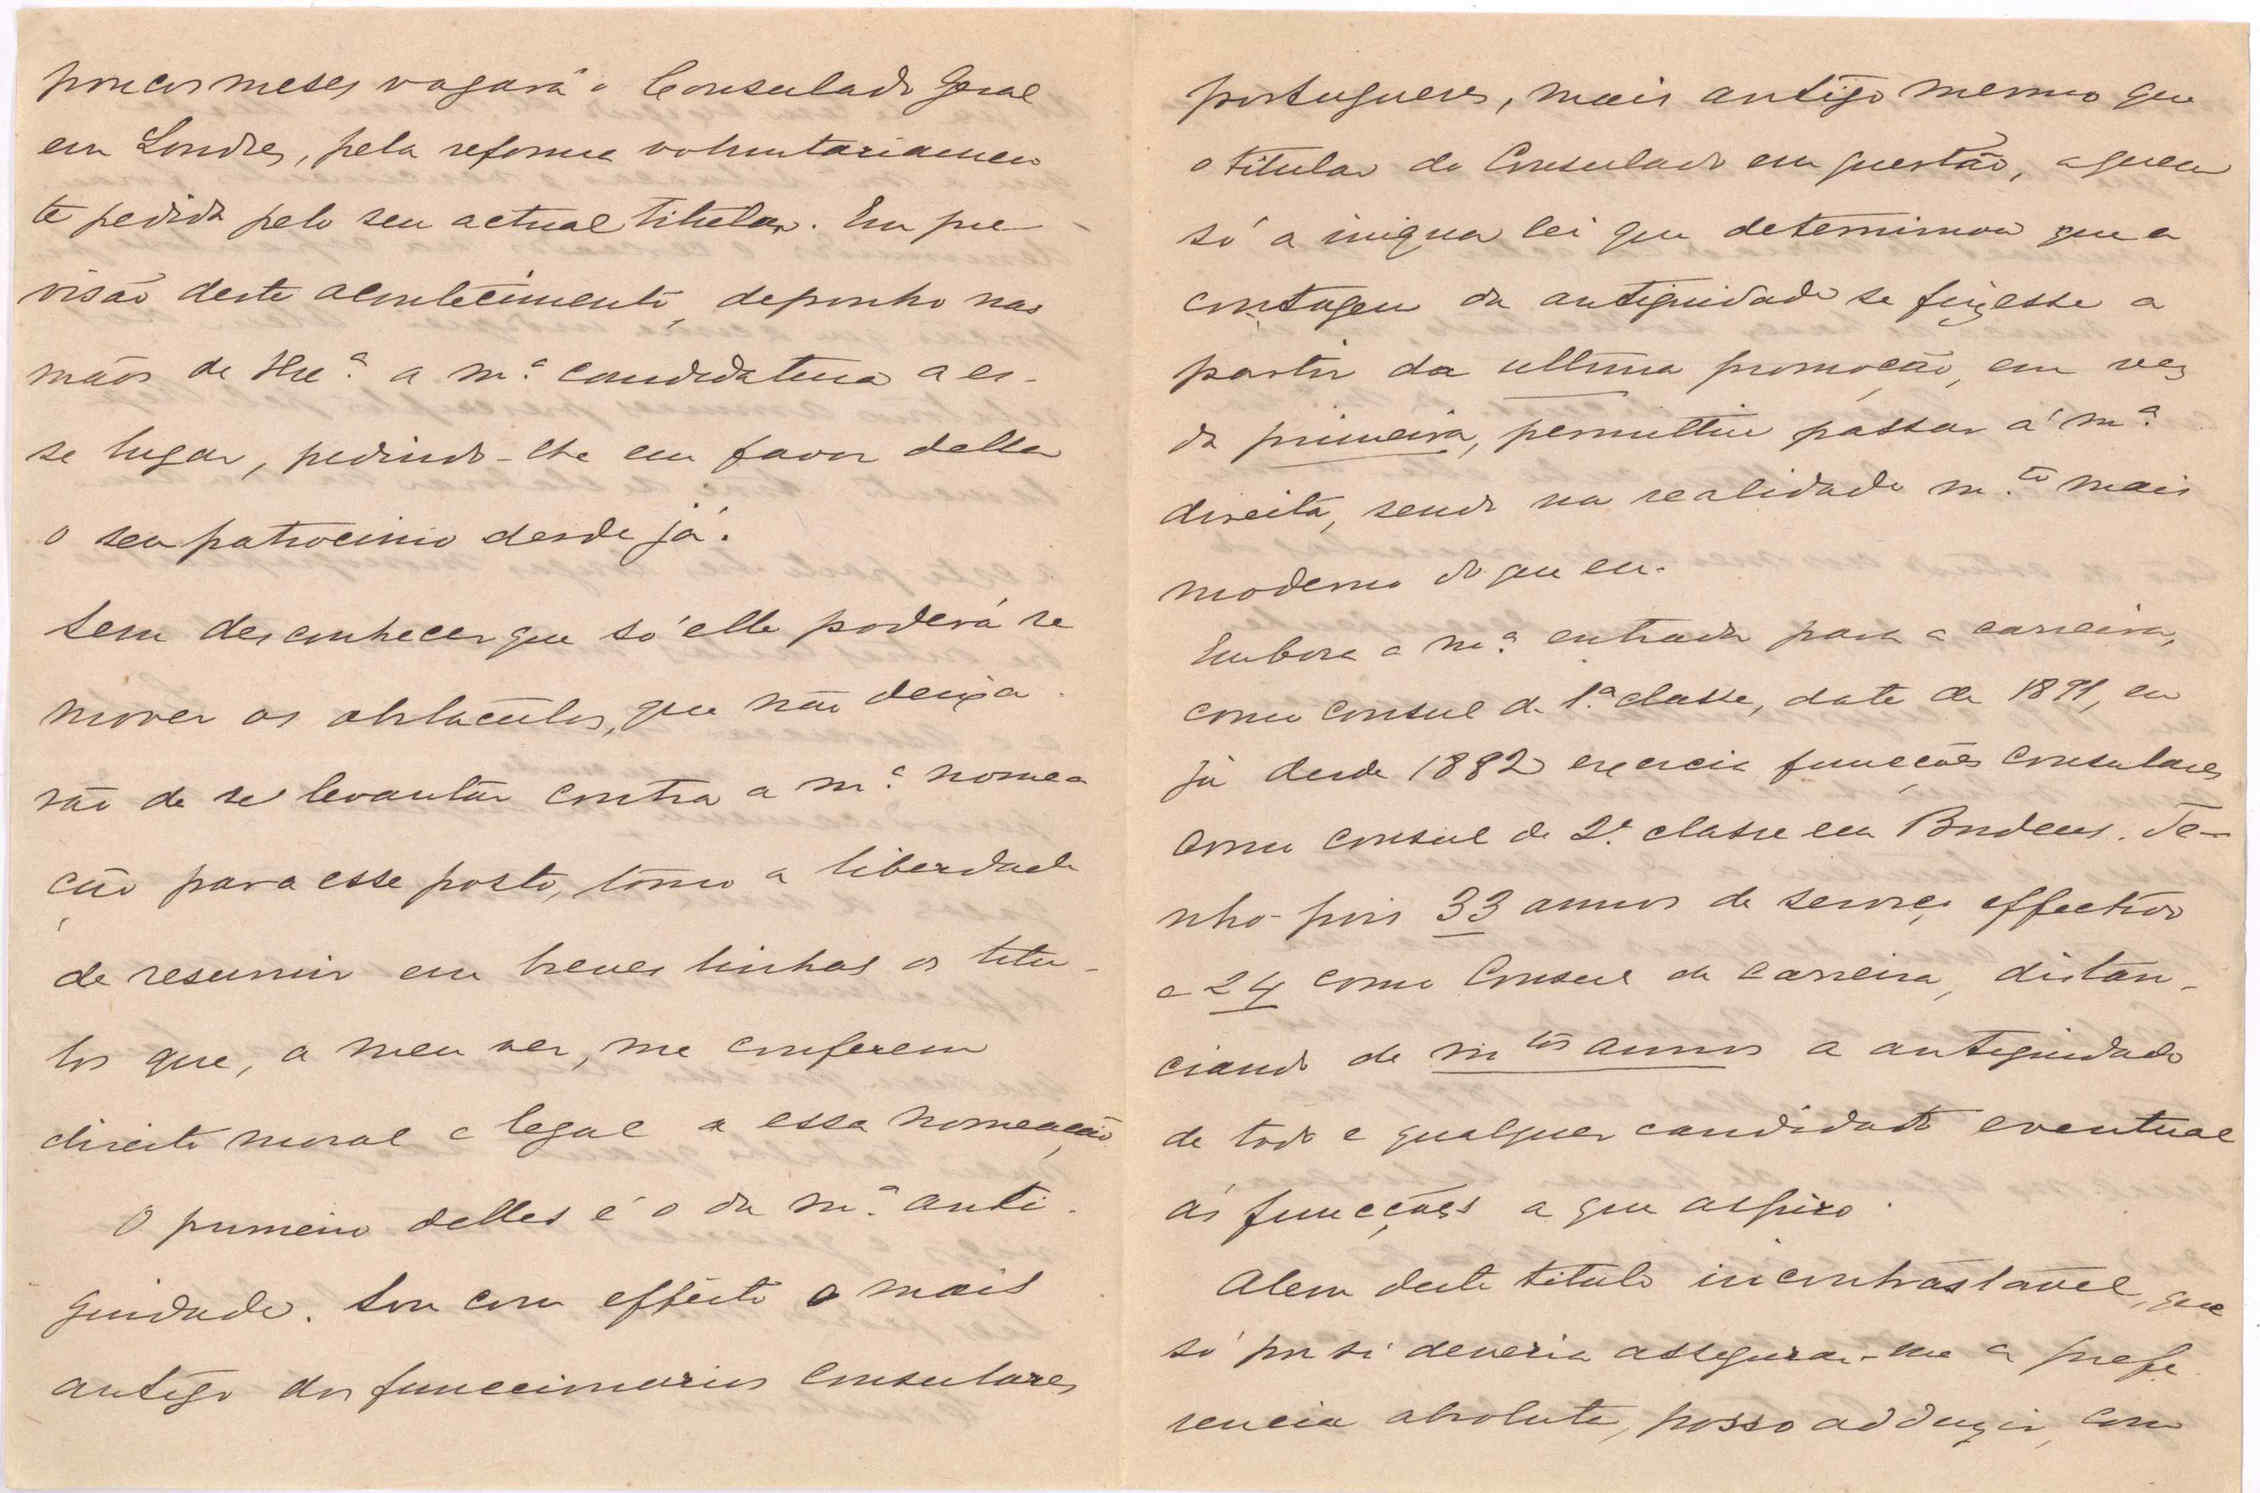 poucos meses vagará o Consulado Geral
em Londres, pela reforma voluntariamen
te pedida pelo seu actual titular. Em pre-
visão deste acontecimento, deponho nas
mãos de V. Ex.ª a m.ª candidatura a es-
se lugar, pedindo-lhe em favor della
o seu patrocinio desde já.
Sem desconhecer que só elle poderá re
mover os obstaculos, que não deixa-
rão de se levantar contra a m.ª nomea
ção para esse posto, tomo a liberdade
de resumir em breves linhas os titu-
los que, a meu ver, me conferem
direito moral e legal a essa nomeação,
O primeiro delles é o da m.ª anti-
guidade. Sou com effeito o mais
antigo dos funccionarios consulares
portugueses, mais antigo mesmo que
o titular do Consulado em questão, a quem
só a iniqua lei que determinou que a
contagem da antiguidade se fizesse a
partir da ultima promoção, em vez
da primeira, permittiu passar á m.ª
direita, sendo na realidade m.to mais
moderno do que eu.
Embora a m.ª entrada para a carreira,
como consul de 1.ª classe, date de 1891, eu
já desde 1882 exercia funcções consulares
como consul de 2.ª classe em Bordeus. Te-
nho pois 33 annos de serviço effectivo
e 24 como Consul de carreira, distan-
ciando de m.tos annos a antiguidade
de todo e qualquer candidato eventual
ás funcções a que aspiro.
Alem deste titulo incontrastavel, que
só por si deveria assegurar-me a prefe-
rencia absoluta, posso adduzir, com